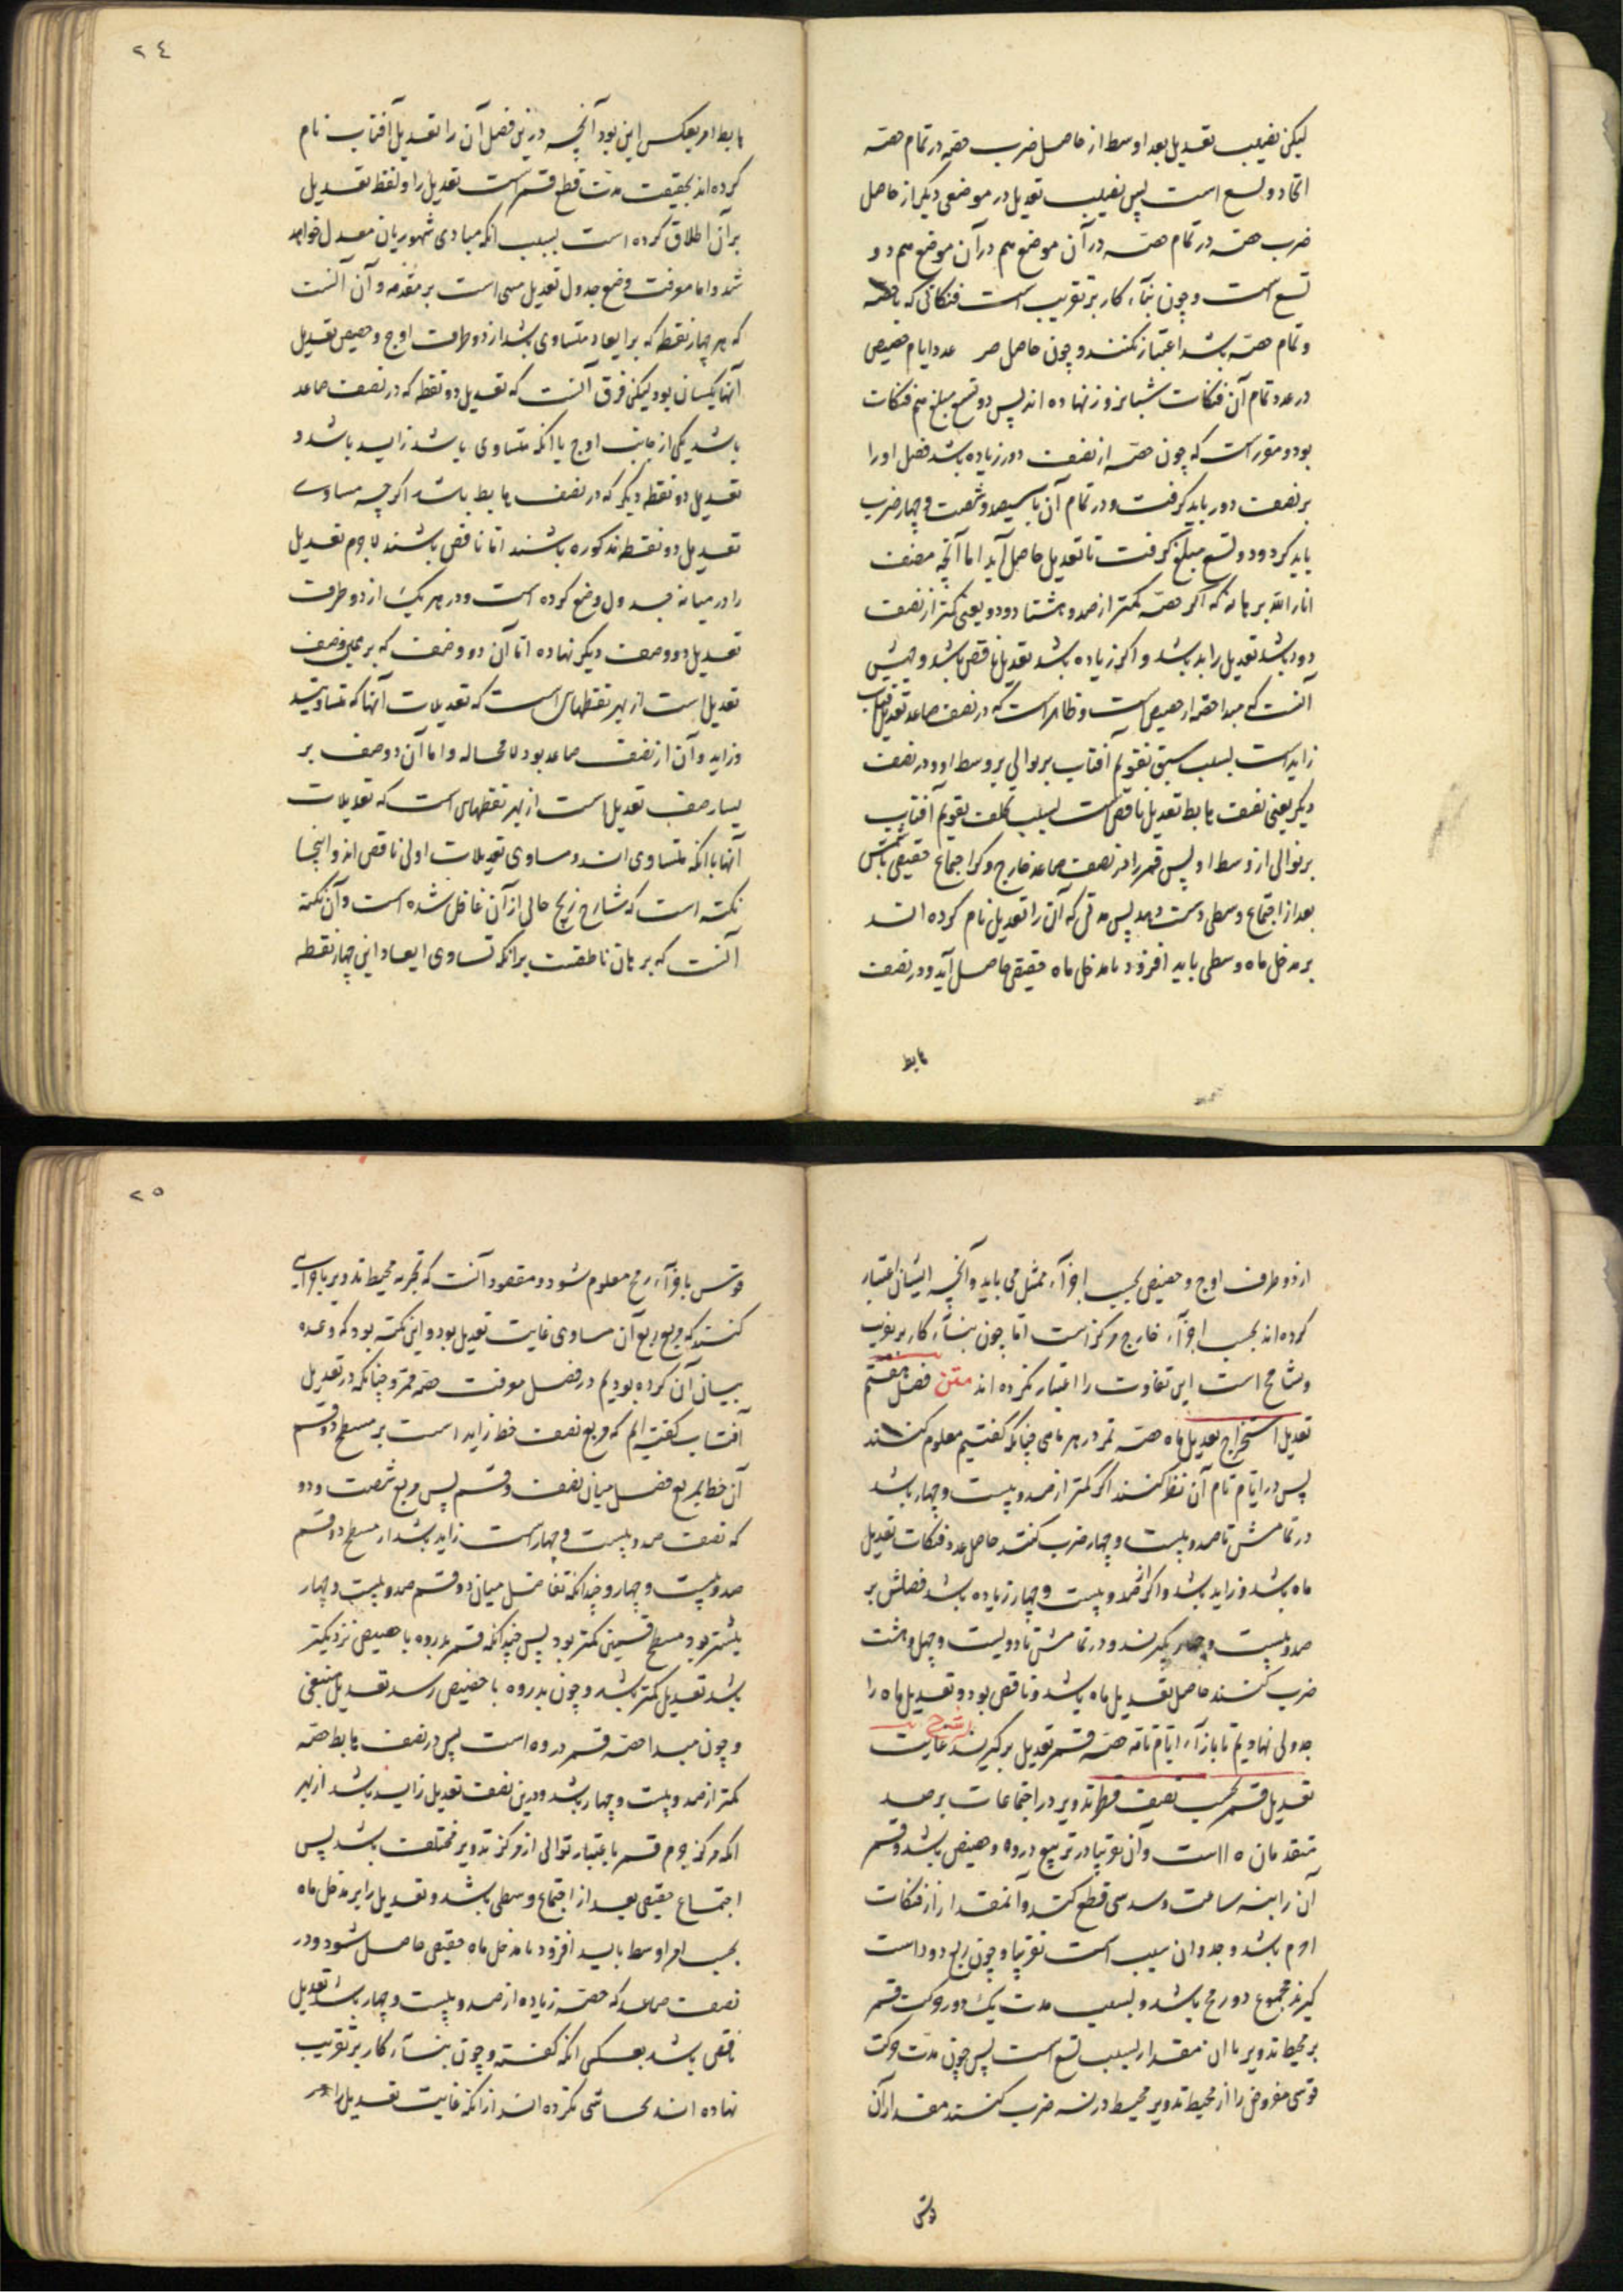 لیکن نصیب تعدیل بعد اوسط از حاصل ضرب حصه در تمام حصه
اتحاد و تسع است پس نصیب تعدیل در موضعی دیگر از حاصل
ضرب حصه در تمام حصه در آن موضع هم در آن موضع هم دو
تسع است و چون بناء کار بر تقریب است فنکاتی که با حصه
و تمام حصه باشد اعتبار نکنند و چون حاصل ضر عدد ایام حضیض
در عدد تمام آن فنکات شبانروز نهاده اند پس دو تسع مبلغ هم فنکات
بود و مقرر است که چون حصه از نصف دور زیاده باشد فضل او را
بر نصف دور باید گرفت و در تمام آن با سیصد و شصت و چهار ضرب
باید کرد و دو تسع مبلغ گرفت تا تعدیل حاصل آید اما آنچه مصنف
انار الله برهانه که اگر حصه کمتر از صد و هشتاد و دو یعنی کمتر از نصف
دور باشد تعدیل زاید باشد و اگر زیاده باشد تعدیل ناقص باشد و جهتش
آنست که مبدا حصه از حضیض است و ظاهر است که در نصف صاعد تعدیل آفتاب
زاید است بسبب سبق تقویم آفتاب بر توالی بر وسط او و در نصف
دیگر یعنی نصف هابط تعدیل ناقص است بسبب تخلف تقویم آفتاب
بر توالی از وسط او پس قمر را در نصف صاعد خارج مرکز اجتماع حقیقی با شمس
بعد از اجتماع وسطی دست دهد پس مدتی که آن را تعدیل نام کرده اند
بر مدخل ماه وسطی باید افزود تا مدخل ماه حقیقی حاصل آید و در نصف
هابط
٢٤
هابط امر بعکس این بود آنچه درین فصل آن را تعدیل آفتاب نام
کرده اند بحقیقت مدت قطع قمر است تعدیل را و لفظ تعدیل
بر آن اطلاق کرده است بسبب آنکه مبادی شهور بان معدل خواهد
شد و اما معرفت وضع جدول تعدیل مبنی است بر مقدمه و آن آنست
که هر چهار نقطه که بر ابعاد متساوی باشد از دو طرف اوج و حضیض تعدیل
آنها یکسان بود لیکن فرق آنست که تعدیل دو نقطه که در نصف صاعد
باشد یکی از جانب اوج با آنکه متساوی باشد زاید باشد و
تعدیل دو نقطه دیگر که در نصف هابط باشد اگرچه مساوی
تعدیل دو نقطه مذکوره باشند اما ناقص باشند لاجرم تعدیل
را در میانه جدول وضع کرده است و در هر یک از دو طرف
تعدیل دو وصف دیگر نهاده اما آن دو وصف که بر یمین وصف
تعدیل است از بهر نقطهای است که تعدیلات آنها که متساویند
و زاید و آن از نصف صاعد بود لا محاله و اما آن دو صف بر
یسار صف تعدیل است از بهر نقطهای است که تعدیلات
آنها با آنکه متساوی اند و مساوی تعدیلات اولی ناقص اند و اینجا
نکته است که شارح زیج خانی از آن غافل شده است و آن نکته
آنست که برهان ناطقست بر آنکه تساوی ابعاد این چهار نقطه
از دو طرف اوج و حضیض بحسب اجزاء ممثل می باید و آنچه ایشان اعتبار
کرده اند بحسب اجزاء خارج مرکز است اما چون بناء کار بر تقریب
و تسامح است این تفاوت را اعتبار نکرده اند متن فصل هفتم
تعدیل استخراج تعدیل ماه حصه قمر در هر ماهی چنانکه گفتیم معلوم کنند
پس در ایام تام آن نظر کنند اگر کمتر از صد و بیست و چهار باشد
در تمامش تا صد و بیست و چهار ضرب کنند حاصل عدد فنکات تعدیل
ماه باشد و زاید باشد و اگر از صد و بیست و چهار زیاده باشد فضلش بر
صد و بیست و چهار بگیرند و در تمامش تا دویست و چهل و هشت
ضرب کنند حاصل تعدیل ماه باشد و ناقص بود و تعدیل ماه را
جدولی نهادیم تا بازاء ایام تامه حصه قمر تعدیل برگیرند شرح غایت
تعدیل قمر بحسب نصف قطر تدویر در اجتماعات بر رصد
متقدمان ه ا است و آن تقریبا در تربیع ذروه و حضیض باشد و قمر
آن را بنه ساعت و سدسی قطع کند و آنمقدار از فنکات
باشد و جدوان سبب است تقریبا و چون ربع دور است
گیرند مجموع دور باشد و بسبب مدت یک دور حرکت قمر
بر محیط تدویر با آن مقدار بسبب تسع است پس چون مدت حرکت
قوسی مفروض را از محیط تدویر محیط در نه ضرب کنند مقدار آن
قوس
٢٥
قوس باجزاء رمح معلوم شود و مقصود آنست که تجزیه محیط تدویر باجزایی
کنند که مربع ربع آن مساوی غایت تعدیل بود و این نکته بود که وعده
بیان آن کرده بودیم در فصل معرفت حصه قمر و چنانکه در تعدیل
آفتاب گفته ایم که مربع نصف خط زاید است بر مسطح دو قسم
آن خط بمربع فضل میان نصف و قسم پس مربع شصت و دو
که نصف صد و بیست و چهار است زاید باشد از مسطح دو قسم
صد و بیست و چهار و چندانکه تفاضل میان دو قسم صد و بیست و چهار
بیشتر بود مسطح قسمین کمتر بود پس چندانکه قمر بذروه یا حضیض نزدیکتر
باشد تعدیل کمتر باشد و چون بذروه یا حضیض رسد تعدیل منتفی
و چون مبدا حصه قمر ذروه است پس در نصف هابط حصه
کمتر از صد و بیست و چهار باشد و درین نصف تعدیل زاید باشد از بهر
آنکه مرکز جرم قمر باعتبار توالی از مرکز تدویر مختلف باشد پس
اجتماع حقیقی بعد از اجتماع وسطی باشد و تعدیل را بر مدخل ماه
بحسب امر اوسط باید افزود تا مدخل ماه حقیقی حاصل شود و در
نصف صاعد که حصه زیاده از صد و بیست و چهار باشد تعدیل
ناقص باشد بعکس آنکه گفته و چون بناء کار بر تقریب
نهاده اند تحاشی نکرده اند از آنکه غایت تعدیل را